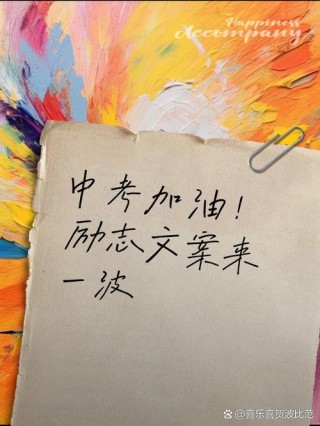 Happiness
Accompany
中考加油!
励志文案来
一波
@喜乐喜贺波比范